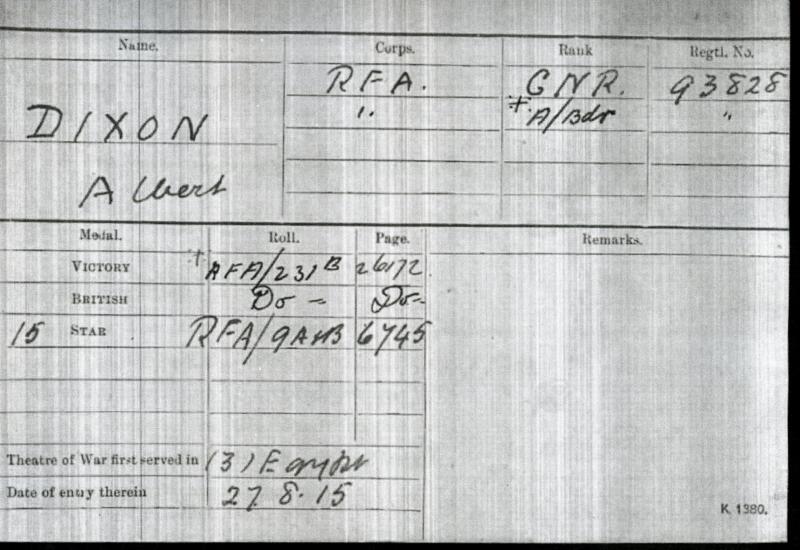 Name. Corps. Rank Regtl. No.
R F A. G N R. 93828
DIXON ,, ‡ A/Bdr "
Albert
Medal. Roll. Page. Remarks.
VICTORY ‡ RFA/231 B 26172
BRITISH Do - Do-
15 STAR RFA/9A&B 6745
Theatre of War first served in (3) Egypt
Date of entry therein 27.8.15
K. 1380.